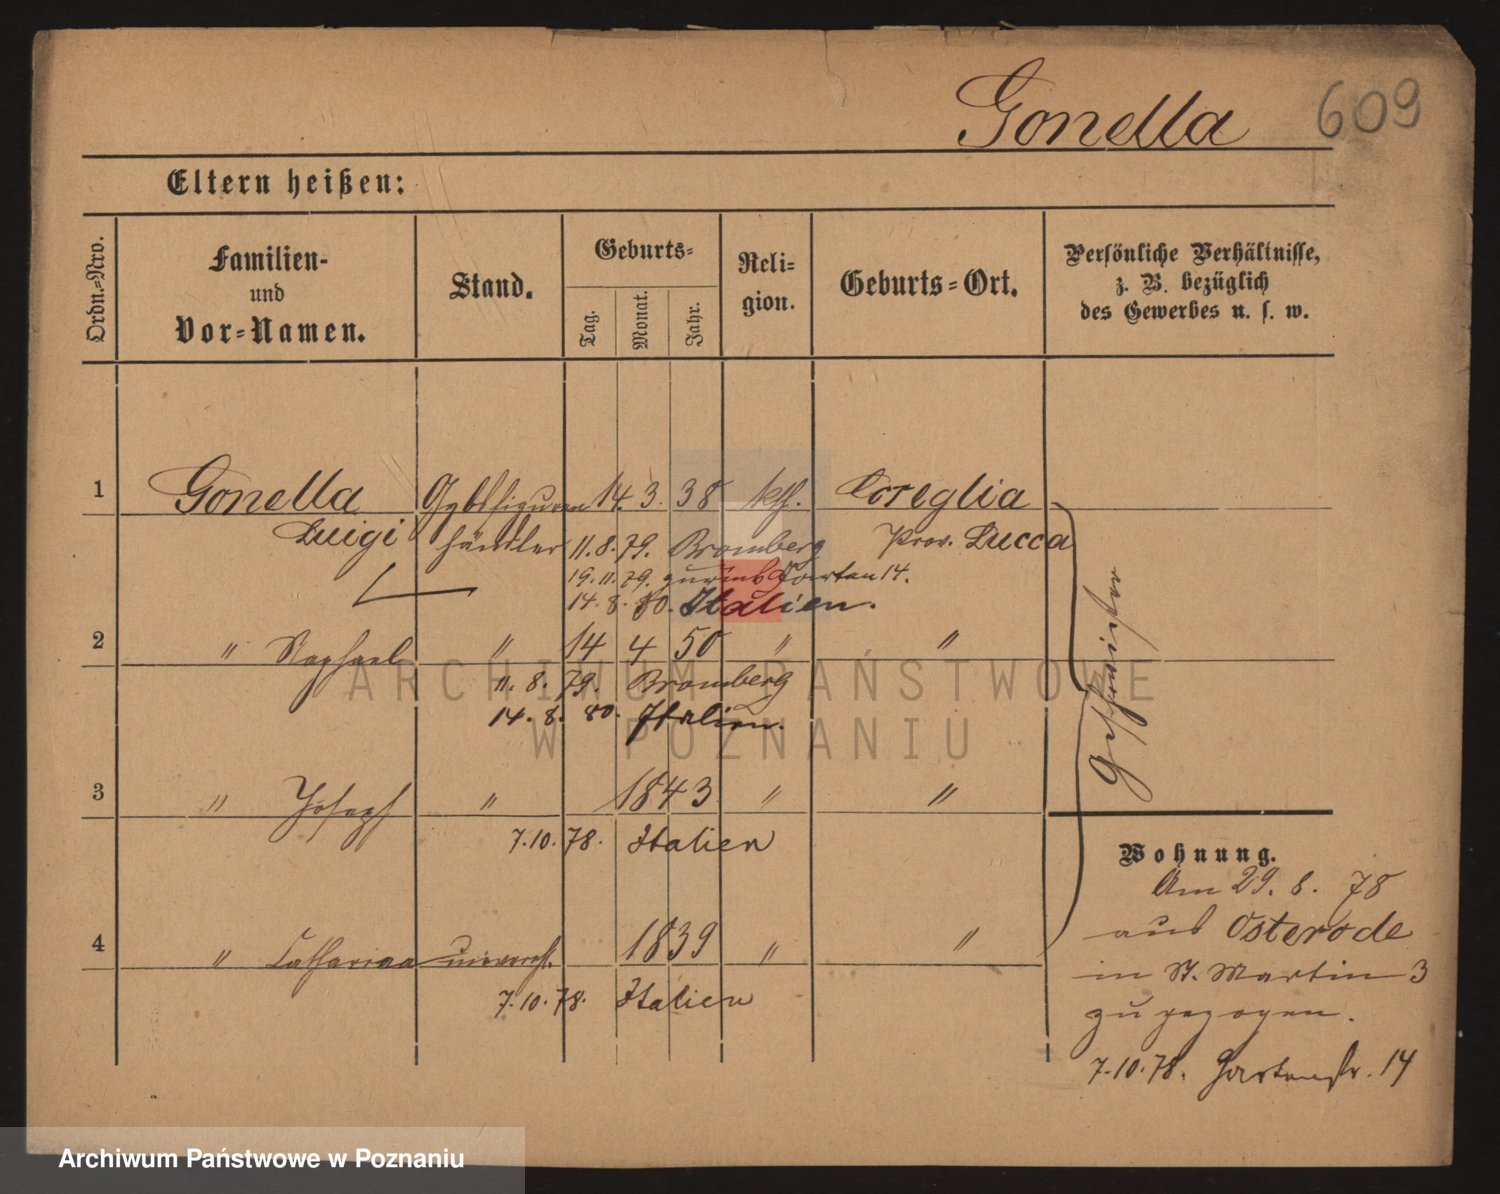 Gonella 609
Eltern heißen:
Ordn.=Nro.
Familien-
und
Vor=Namen.
Stand.
Geburts=
Tag.
Monat.
Jahr.
Reli=
gion.
Geburts=Ort.
Persönliche Verhältnisse,
z. B. bezüglich
des Gewerbes u. s. w.
1 Gonella Gybsfiguren 14. 3. 38 kth. Coreglia
Luigi händler 11. 8. 79. Bromberg Prov. Lucca
19. 11. 79. zurück Garten 14.
14. 8. 80. Italien.
2 " Raphael " 14 4 50 " "
11. 8. 79. Bromberg
14. 8. 80. Italien.
3 " Joseph " 1843 " "
7. 10. 78. Italien
4 " Catharina unvereh. 1839 " "
7. 10. 78. Italien
Geschwister
Wohnung.
Am 29. 8. 78
aus Osterode
in St. Martin 3
zugezogen.
7. 10. 78. Gartenstr. 14
ARCHIWUM PAŃSTWOWE
W POZNANIU
Archiwum Państwowe w Poznaniu